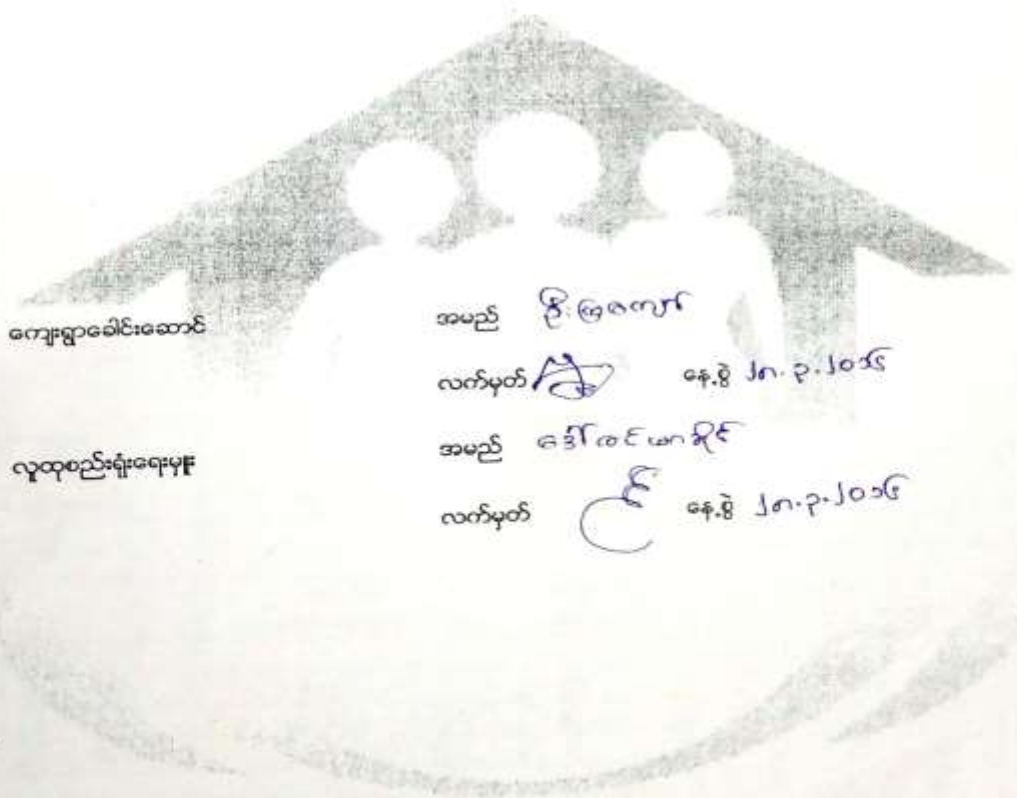 ကျေးရွာခေါင်းဆောင် အမည် ဦးကြွကျော်
လက်မှတ် နေ့စွဲ ၂၈.၃.၂၀၁၆
လူထုစည်းရုံးရေးမှူး အမည် ဒေါ်ခင်ယာခိုင်
လက်မှတ် နေ့စွဲ ၂၈.၃.၂၀၁၆